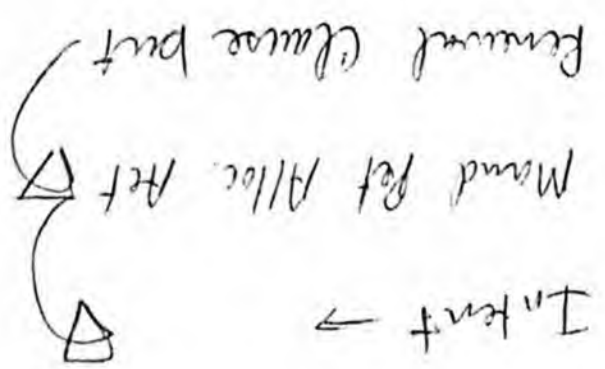 Intent →
Mand Pet Alloc. Act
Renewal Clause but